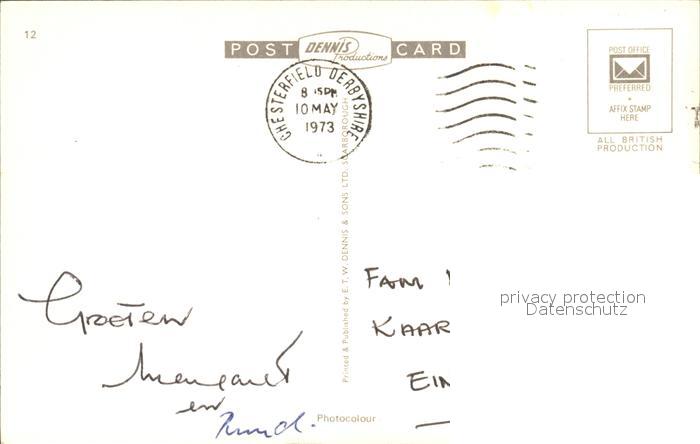 12
POST DENNIS Productions CARD
CHESTERFIELD DERBYSHIRE
8 15PM
10 MAY
1973
POST OFFICE
PREFERRED
AFFIX STAMP
HERE
ALL BRITISH
PRODUCTION
Printed & Published by E.T.W. DENNIS & SONS LTD. SCARBOROUGH
Groeten
Margaret
en
Ruud.
FAM
KAAR
EIN
privacy protection
Datenschutz
Photocolour